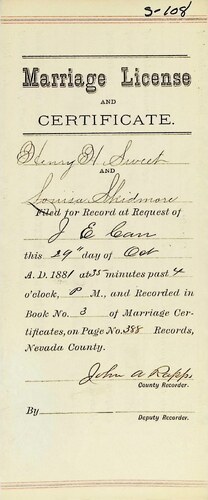 3-108
Marriage License
AND
CERTIFICATE.
Henry H. Sweet
AND
Louisa Skidmore
Filed for Record at Request of
J E Carr
this 29" day of Oct
A. D. 1881 at 35 minutes past 4
o'clock, P M., and Recorded in
Book No. 3 of Marriage Cer-
tificates, on Page No. 388 Records,
Nevada County.
John A Rapp
County Recorder.
By
Deputy Recorder.